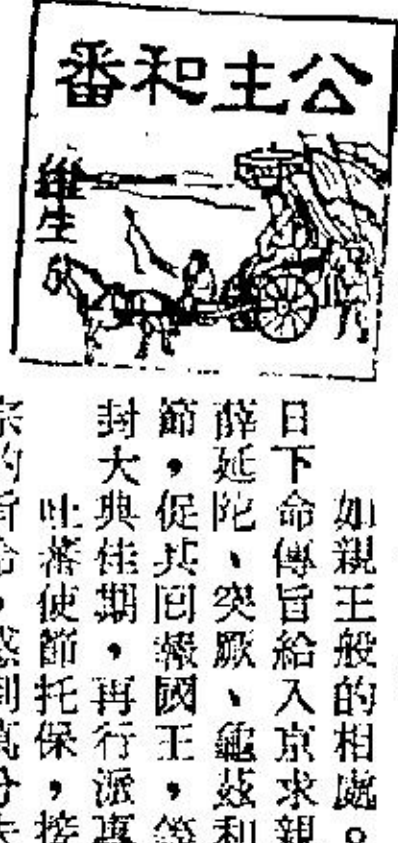 公主和番
維生
如親王般的相處。
日下命傳旨給入京求親
薛延陀、突厥、龜茲和
節,促其回報國王,
封大典佳期,再行派專
吐蕃使節托保,接
宗的旨命,感到